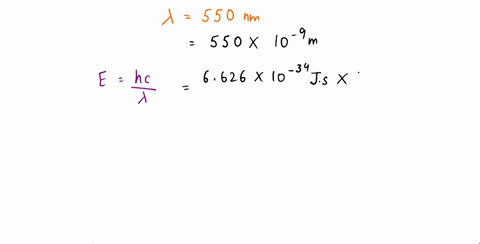 λ = 550 nm
= 550 × 10⁻⁹ m
E = hc/λ = 6.626 × 10⁻³⁴ J.s ×